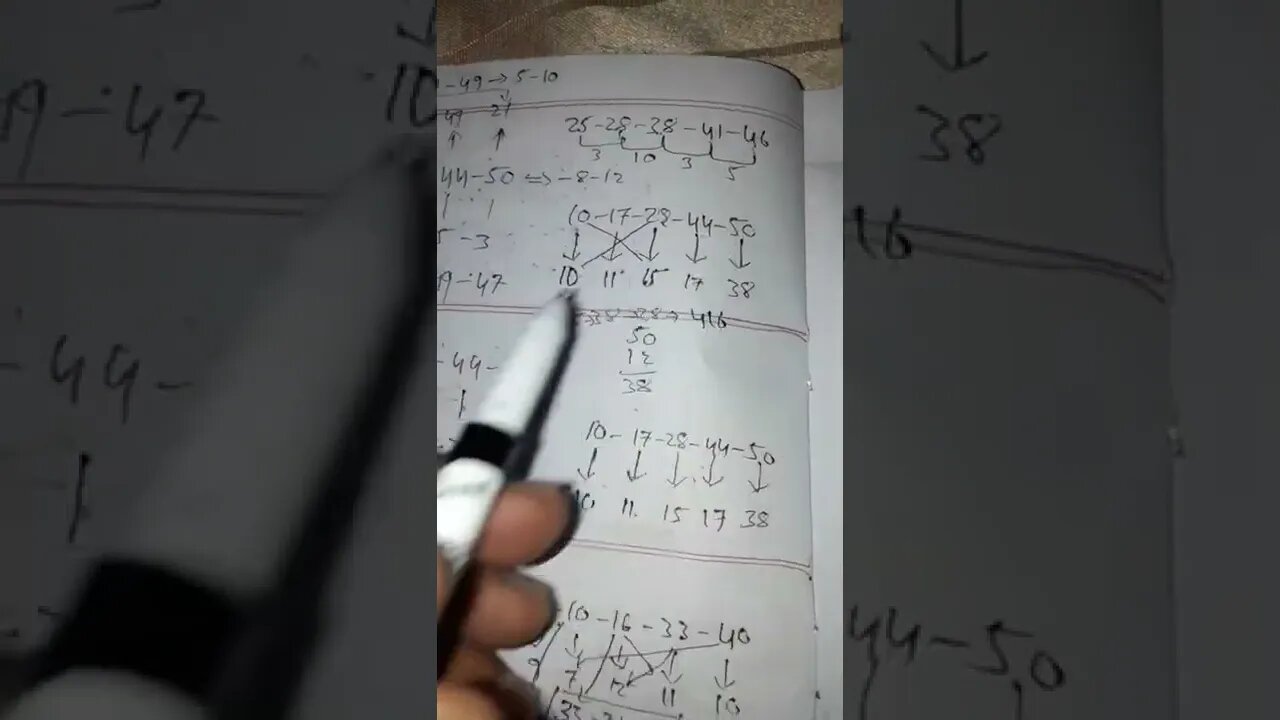 -49→5-10
49 21
25-28-38-41-46
3 10 3 5
44-50⇔-8-12
10-17-28-44-50
5-3
10 11 15 17 38
19-47
416
50
12
38
-44-
10-17-28-44-50
10 11 15 17 38
10-16-33-40
7 12 11 10
33